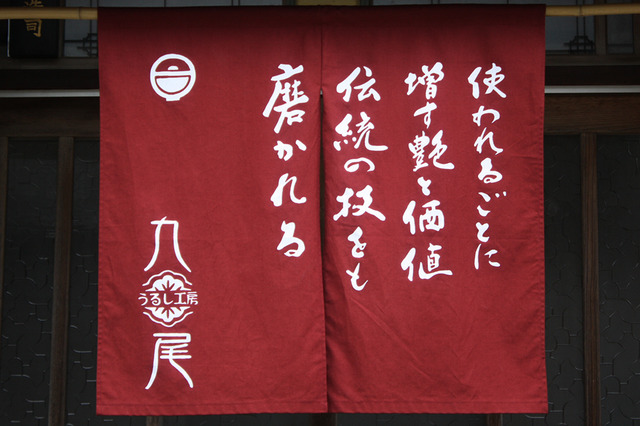 使われるごとに
増す艶と価値
伝統の技をも
磨かれる
九
うるし工房
尾